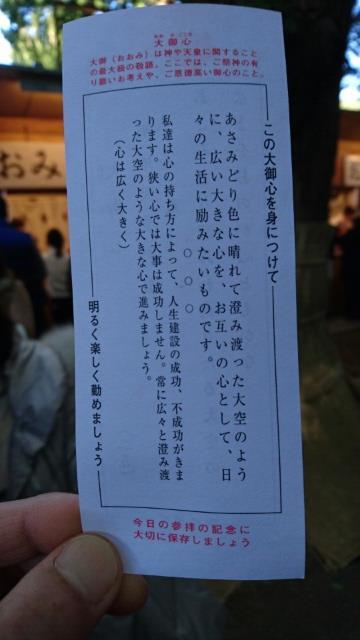 おお み こころ
大御心
大御（おおみ）は神や天皇に関すること
の最大級の敬語。ここでは、ご祭神の有
り難いお考えや、ご恩徳高い御心のこと。
この大御心を身につけて
あさみどり色に晴れて澄み渡った大空のよう
に、広い大きな心を、お互いの心として、日
々の生活に励みたいものです。
○○○
私達は心の持ち方によって、人生建設の成功、不成功がきま
ります。狭い心では大事は成功しません。常に広々と澄み渡
った大空のような大きな心で進みましょう。
（心は広く大きく）
明るく楽しく勤めましょう
今日の参拝の記念に
大切に保存しましょう
おみ